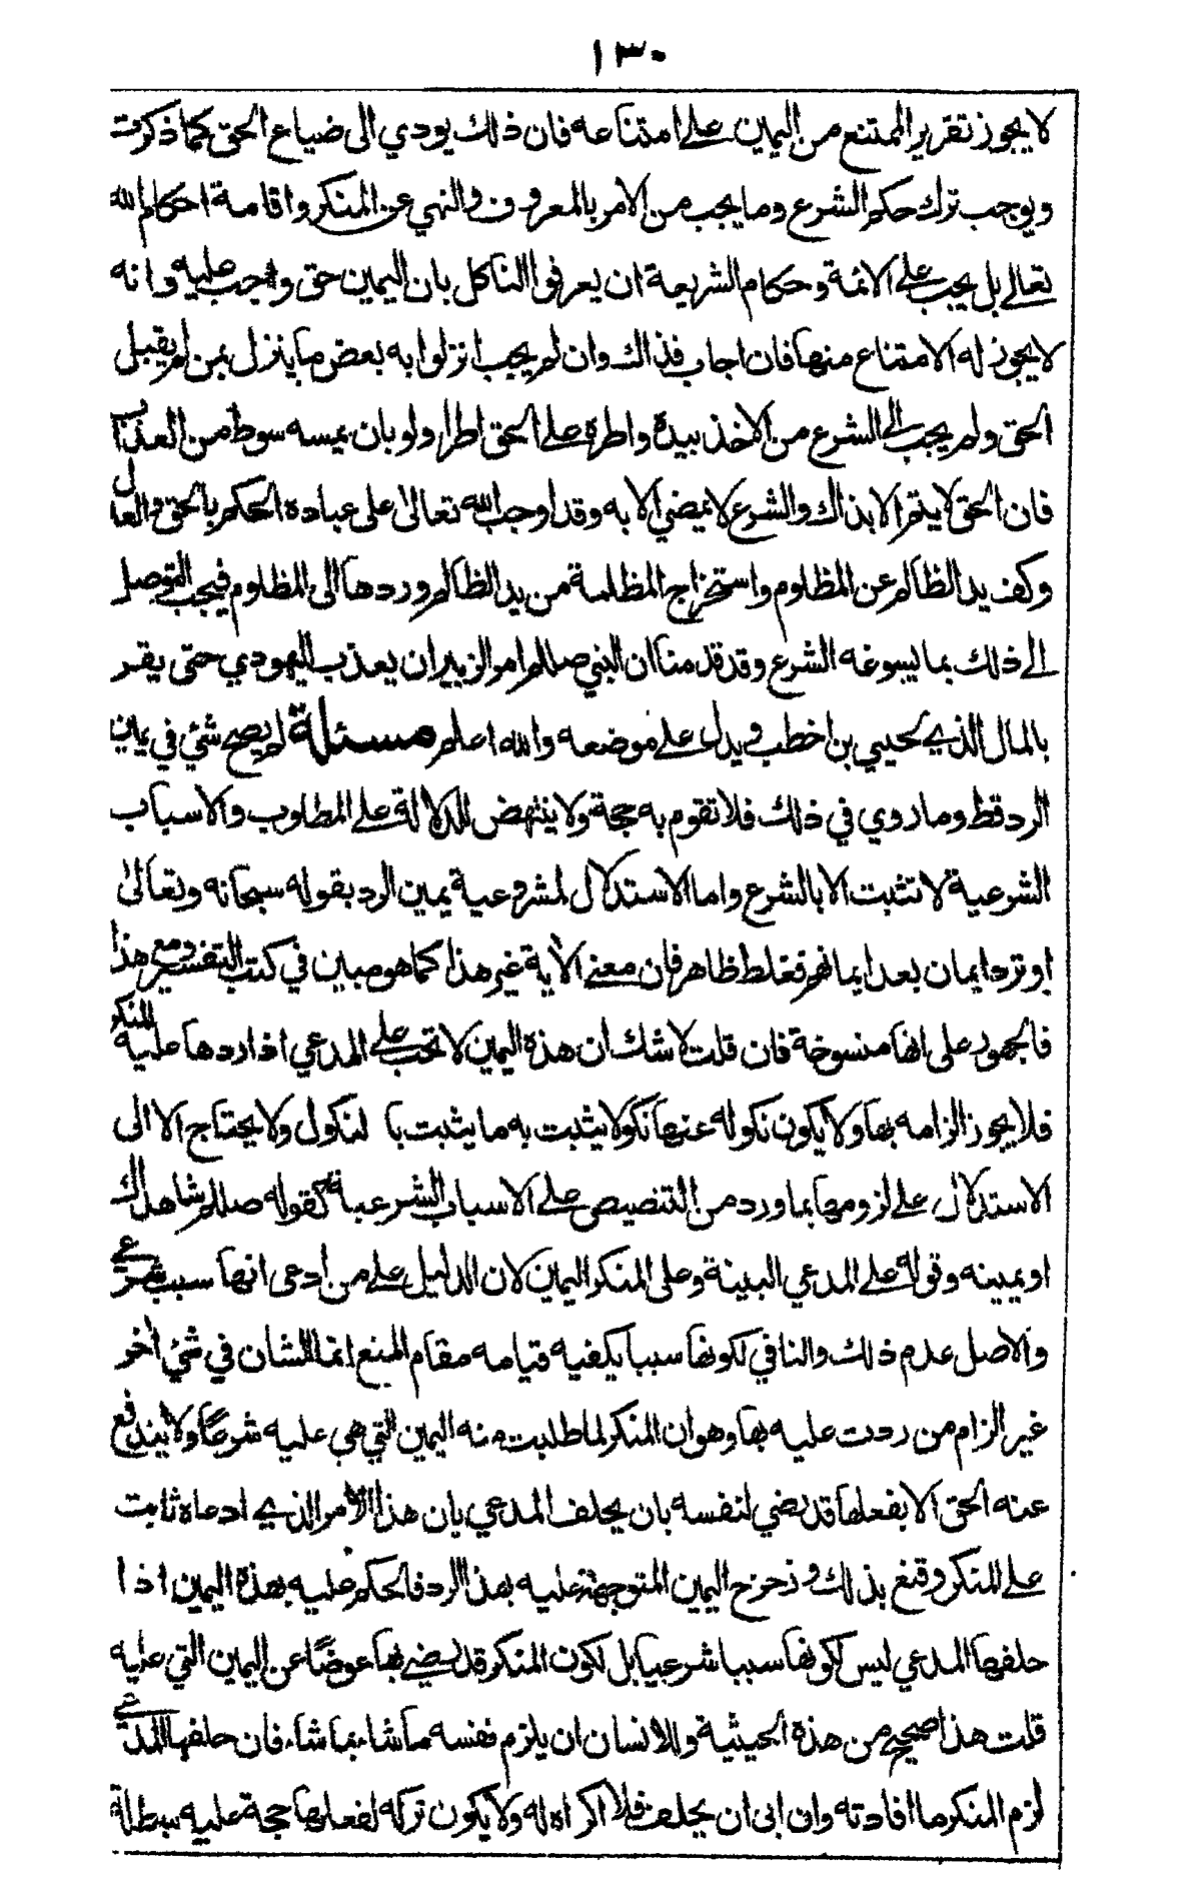 ١٣٠
لا يجوز تقرير الممتنع من اليمين على امتناعه فان ذلك يودي الى ضياع الحق كما ذكرت
ويوجب ترك حكم الشرع وما يجب من الامر بالمعروف والنهي عن المنكر واقامة احكام الله
تعالى بل يجب على الائمة وحكام الشريعة ان يعرفوا الناكل بان اليمين حق واجب عليه وانه
لا يجوز له الامتناع منها فان اجاب فذاك وان لم يجب انزلوا به بعض ما ينزل بمن لم يقبل
الحق ولم يجب الى الشرع من الاخذ بيده واطره على الحق اطرا ولو بان يمسه سوط من العذاب
فان الحق لا يتم الا بذاك والشرع لا يمضي الا به وقد اوجب الله تعالى على عباده الحكم بالحق والعدل
وكف يد الظالم عن المظلوم واستخراج المظلمة من يد الظالم وردها الى المظلوم فيجب التوصل
الى ذلك بما يسوغه الشرع وقد قدمنا ان النبي صللم امر الزبير ان يعذب اليهودي حتى يقر
بالمال الذي لحيي بن اخطب ويدل على موضعه والله اعلم مسئلة لم يصح شئ في يمين
الرد قط وما روي في ذلك فلا تقوم به حجة ولا ينتهض للدلالة على المطلوب والاسباب
الشرعية لا تثبت الا بالشرع واما الاستدلال لمشروعية يمين الرد بقوله سبحانه وتعالى
او ترد ايمان بعد ايمانهم فغلط ظاهر فان معنى الآية غير هذا كما هو مبين في كتب التفسير ومع هذا
فالجمهور على انها منسوخة فان قلت لا شك ان هذه اليمين لا تجب على المدعي اذا ردها عليه المنكر
فلا يجوز الزامه بها ولا يكون نكوله عنها نكولا يثبت به ما يثبت با لنكول ولا يحتاج الا الى
الاستدلال على لزومها بما ورد من التنصيص على الاسباب الشرعية كقوله صللم شاهداك
او يمينه وقوله على المدعي البينة وعلى المنكر اليمين لان الدليل على من ادعى انها سبب شرعي
والاصل عدم ذلك والنافي لكونها سببا يكفيه قيامه مقام المنع انما الشان في شئ آخر
غير الزام من ردت عليه بها وهو ان المنكر لما طلبت منه اليمين التي هي عليه شرعًا ولا يندفع
عنه الحق الا بفعلها قد رضي لنفسه بان يحلف المدعي بان هذا الامر الذي ادعاه ثابت
على المنكر وقنع بذلك وزحزح اليمين المتوجهة عليه بهذا الرد فالحكم عليه بهذه اليمين اذا
حلفها المدعي ليس لكونها سببا شرعيا بل لكون المنكر قد رضي بها عوضًا عن اليمين التي عليه
قلت هذا صحيح من هذه الحيثية وللانسان ان يلزم نفسه ما شاء بما شاء فان حلفها المدعي
لزم المنكر ما افادته وان ابى ان يحلف فلا اكراه له ولا يكون تركه لفعلها حجة عليه مبطلة